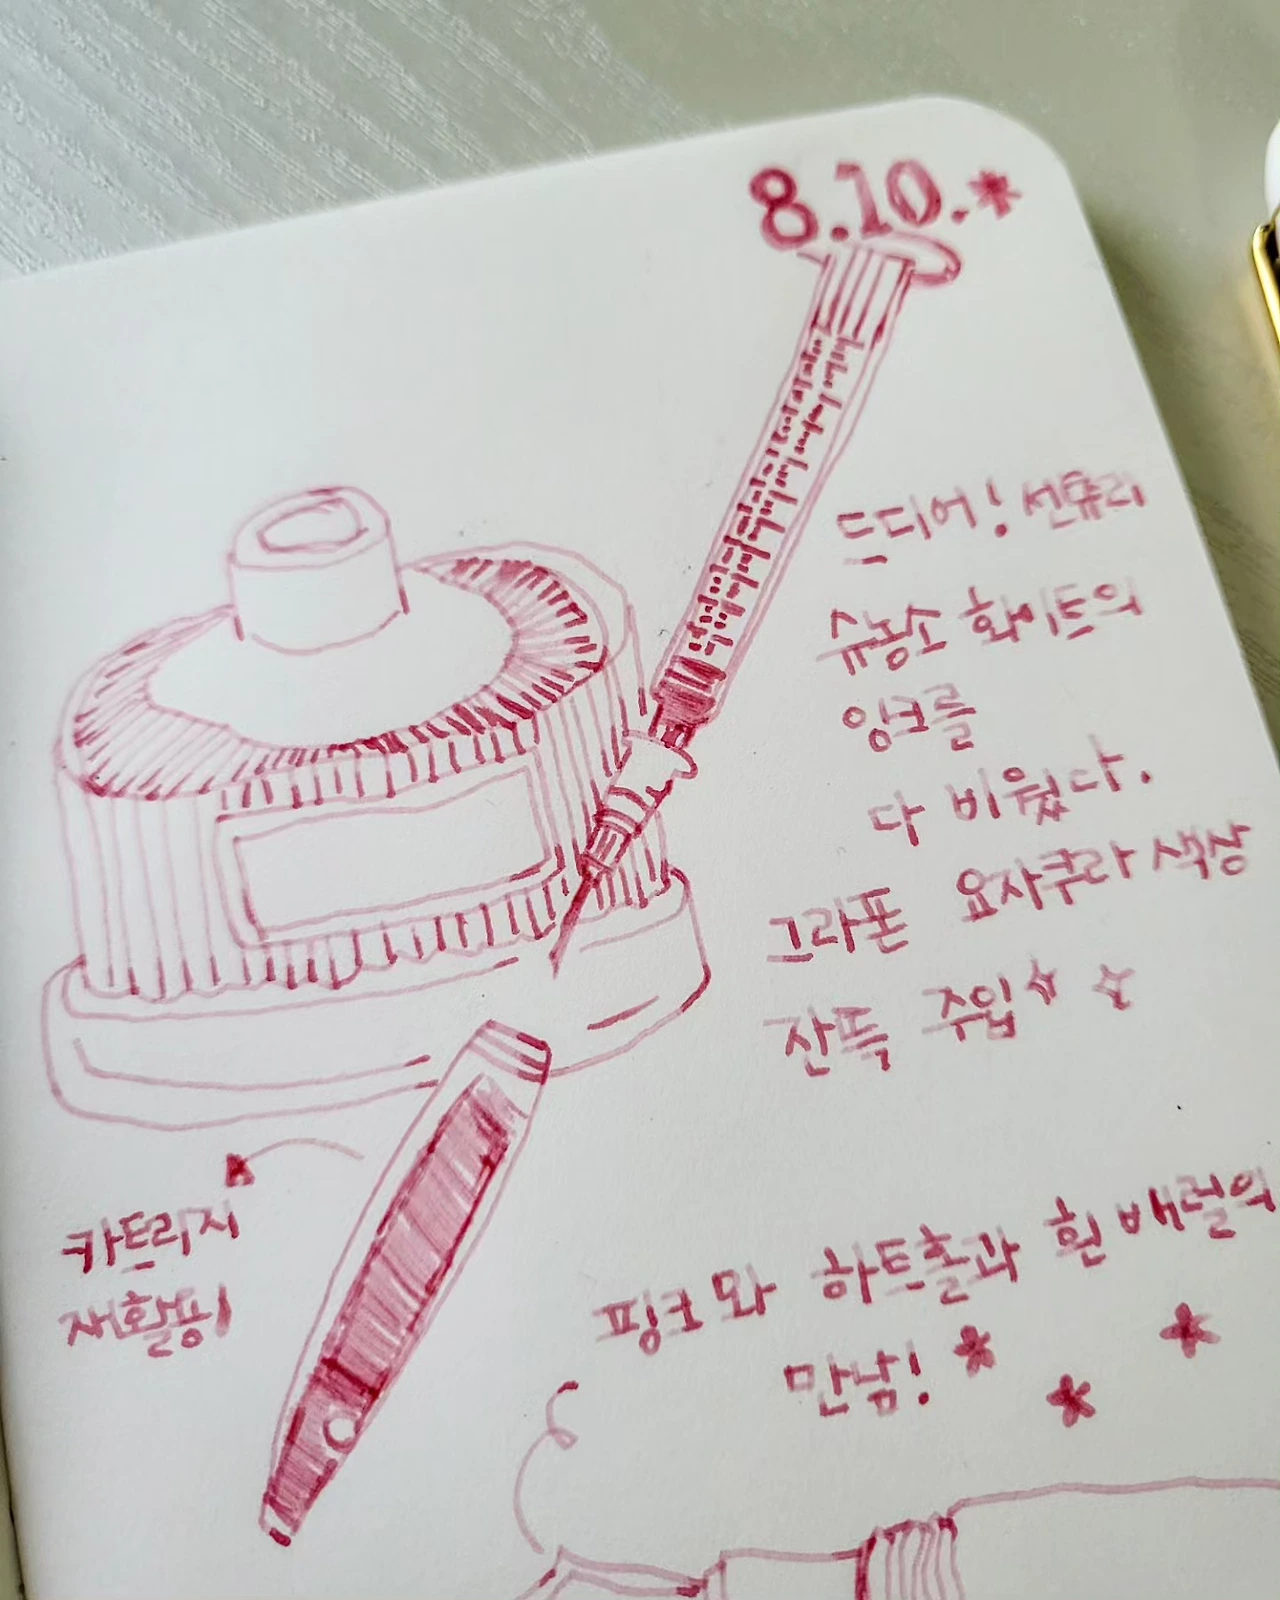 8.10.*
드디어! 선츄리
슈농소 화이트의
잉크를
다 비웠다.
그라폰 요자쿠라 색상
잔뜩 주입
카트리지
재활용!
핑크와 하트홀과 흰 배럴의
만남!